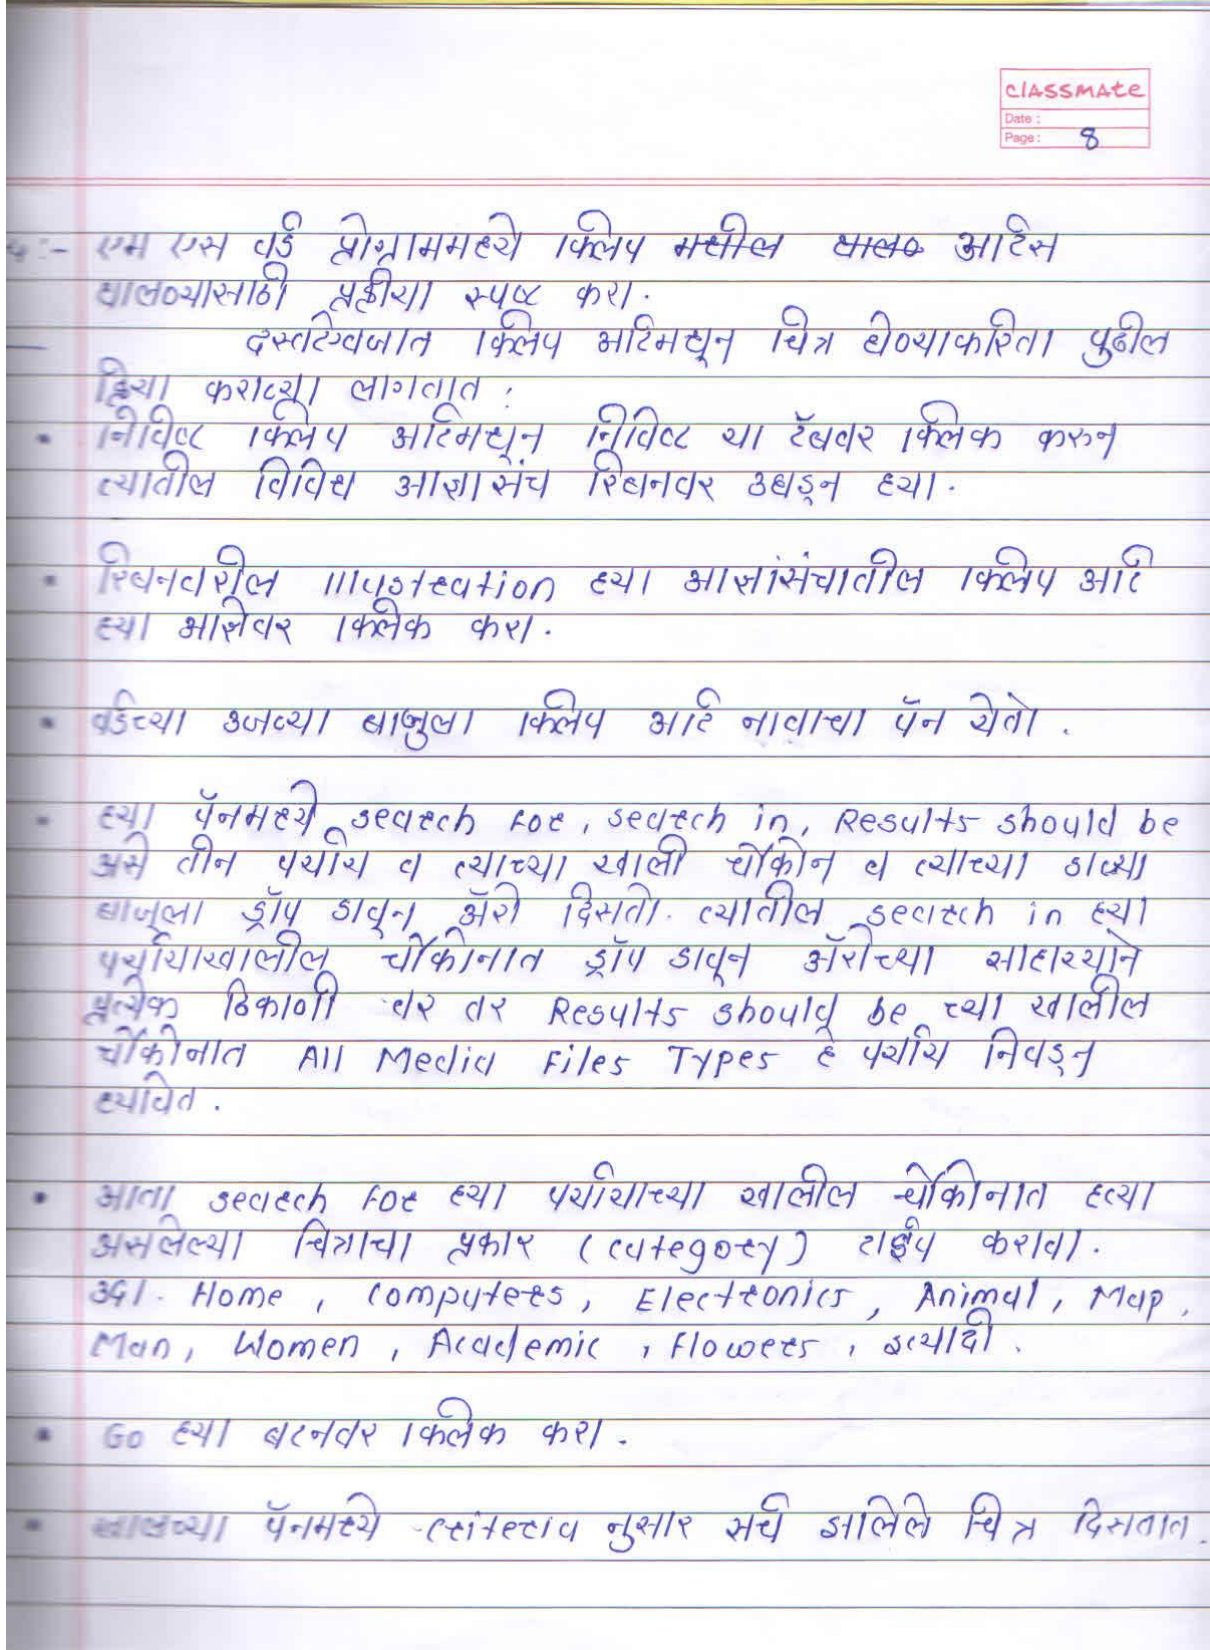 classmate
Date :
Page : 8
एम एस वर्ड प्रोग्राममध्ये क्लिप मधील आर्टस
घालण्यासाठी प्रक्रीया स्पष्ट करा.
दस्तऐवजात क्लिप आर्टमधून चित्र घेण्याकरिता पुढील
क्रिया कराव्या लागतात :
• निविष्ट क्लिप आर्टमधून निविष्ट या टॅबवर क्लिक करुन
त्यातील विविध आज्ञासंच रिबनवर उघडून घ्या.
• रिबनवरील Illustration ह्या आज्ञांसंचातील क्लिप आर्ट
ह्या आज्ञेवर क्लिक करा.
• वर्डच्या उजव्या बाजुला क्लिप आर्ट नावाचा पॅन येतो.
• ह्या पॅनमध्ये search for, search in, Results should be
असे तीन पर्याय व त्याच्या खाली चौकोन व त्याच्या डाव्या
बाजूला ड्रॉप डावून ॲरो दिसतो. त्यातील search in ह्या
पर्यायाखालील चौकोनात ड्रॉप डावून ॲरोच्या साहाय्याने
प्रत्येक ठिकाणी वर तर Results should be च्या खालील
चौकोनात All Media Files Types हे पर्याय निवडून
घ्यावेत.
• आता search for ह्या पर्यायाच्या खालील चौकोनात हव्या
असलेल्या चित्राचा प्रकार (category) टाईप करावा.
उदा. Home, computers, Electronics, Animal, Map,
Man, Women, Academic, Flowers, इत्यादी.
• Go ह्या बटनवर क्लिक करा.
• खालच्या पॅनमध्ये criteria नुसार सर्च झालेले चित्र दिसतात.